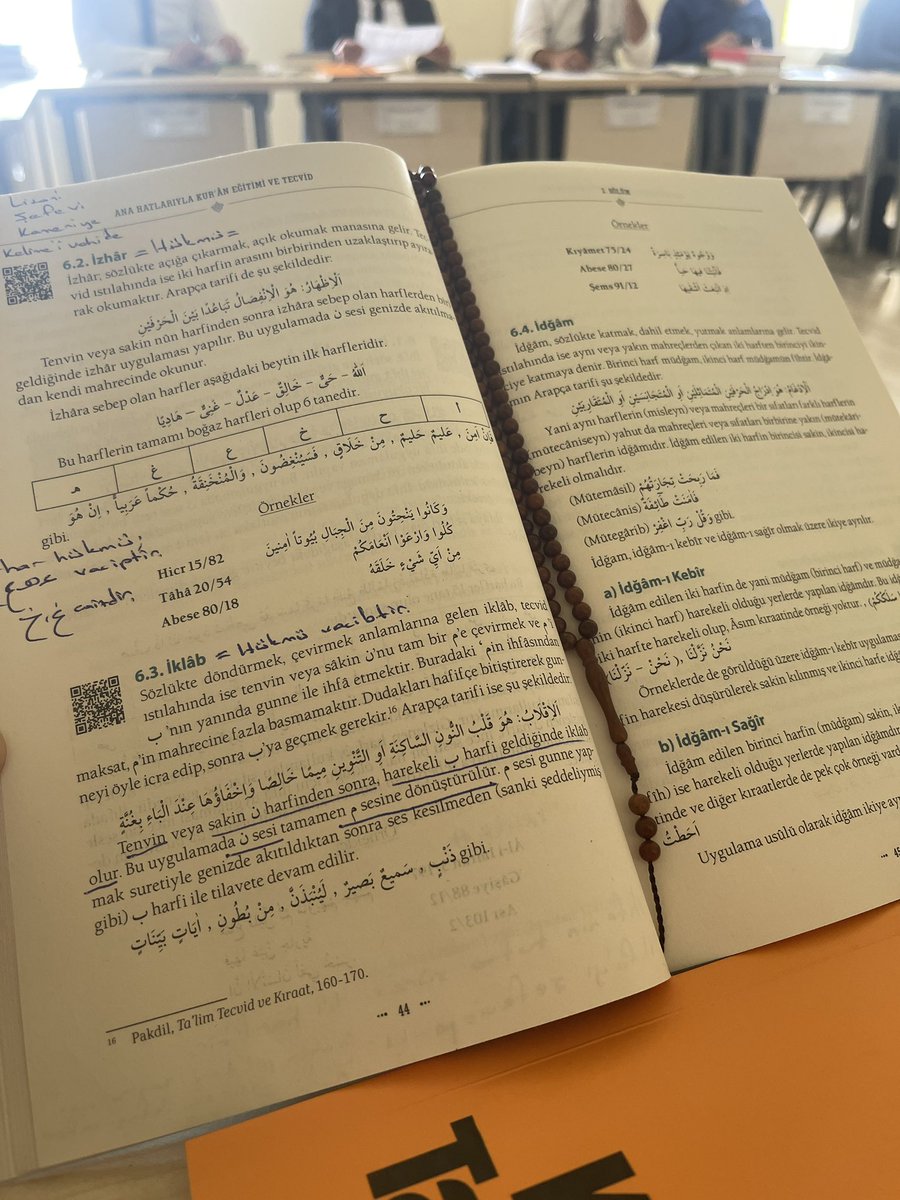 Lizani
Şefevi
Kameriye
Kelime'i vahide
ANA HATLARIYLA KUR'ÂN EĞİTİMİ VE TECVİD
6.2. İzhâr = Hükmü =
İzhâr, sözlükte açığa çıkarmak, açık okumak manasına gelir. Tec-
vid ıstılahında ise iki harfin arasını birbirinden uzaklaştırıp ayıra-
rak okumaktır. Arapça tarifi de şu şekildedir:
اَلْاِظْهَارُ: هُوَ الْاِنْفِصَالُ تَبَاعُدًا بَيْنَ الْحَرْفَيْنِ
Tenvin veya sakin nûn harfinden sonra izhâra sebep olan harflerden biri
geldiğinde izhâr uygulaması yapılır. Bu uygulamada ن sesi genizde akıtılma-
dan kendi mahrecinde okunur.
İzhâra sebep olan harfler aşağıdaki beytin ilk harfleridir.
اَللهُ – حَىٌّ – خَالِقٌ – عَدْلٌ – غَنِىٌّ – هَادِيًا
Bu harflerin tamamı boğaz harfleri olup 6 tanedir.
ا ح خ ع غ هـ
فَاِنْ اٰمَنَ , عَلِيمٌ حَلِيمٌ , مِنْ خَلَاقٍ , فَسَيُنْغِضُونَ , وَالْمُنْخَنِقَةُ , حُكْماً عَرَبِياًّ , اِنْ هُوَ
gibi.
Örnekler
Hicr 15/82 وَكَانُوا يَنْحِتُونَ مِنَ الْجِبَالِ بُيُوتاً اٰمِنِينَ
Tâhâ 20/54 كُلُوا وَارْعَوْا اَنْعَامَكُمْ
Abese 80/18 مِنْ اَيِّ شَيْءٍ خَلَقَهُ
hükmü,
vaciptir.
caizdir.
6.3. İklâb = Hükmü vacibtir.
Sözlükte döndürmek, çevirmek anlamlarına gelen iklâb, tecvid
ıstılahında ise tenvin veya sâkin ن'nu tam bir م'e çevirmek ve م'i
ب 'nın yanında gunne ile ihfâ etmektir. Buradaki م'in ihfâsından
maksat, م'in mahrecine fazla basmamaktır. Dudakları hafifçe bitiştirerek gun-
neyi öyle icra edip, sonra ب'ya geçmek gerekir.¹⁶ Arapça tarifi ise şu şekildedir:
اَلْاِقْلَابُ: هُوَ قَلْبُ النُّونِ السَّاكِنَةِ اَوِ التَّنْوِينِ مِيمًا خَالِصًا وَاِخْفَاؤُهَا عِنْدَ الْبَاءِ بِغُنَّةٍ
Tenvin veya sakin ن harfinden sonra, harekeli ب harfi geldiğinde iklâb
olur. Bu uygulamada ن sesi tamamen م sesine dönüştürülür. م sesi gunne yap-
mak suretiyle genizde akıtıldıktan sonra ses kesilmeden (sanki şeddeliymiş
gibi) ب harfi ile tilavete devam edilir.
ذَنْبٍ , سَمِيعٌ بَصِيرٌ , لَيُنْبَذَنَّ , مِنْ بُطُونِ , اٰيَاتٍ بَيِّنَاتٍ gibi.
16 Pakdil, Ta'lim Tecvid ve Kıraat, 160-170.
44
2. BÖLÜM
Örnekler
Kıyâmet 75/24 وَوُجُوهٌ يَوْمَئِذٍ بَاسِرَةٌ
Abese 80/27 فَاَنْبَتْنَا فِيهَا حَباًّ
Şems 91/12 اِذِ انْبَعَثَ اَشْقٰيهَا
6.4. İdğâm
İdğâm, sözlükte katmak, dahil etmek, yutmak anlamlarına gelir. Tecvid
ıstılahında ise aynı veya yakın mahreçlerden çıkan iki harften birinciyi ikin-
ciye katmaya denir. Birinci harf müdğam, ikinci harf müdğamün fîhtir. İdğâ-
mın Arapça tarifi şu şekildedir:
اَلْاِدْغَامُ: هُوَ اِدْرَاجُ الْحَرْفَيْنِ الْمُتَمَاثِلَيْنِ اَوِ الْمُتَجَانِسَيْنِ اَوِ الْمُتَقَارِبَيْنِ
Yani aynı harflerin (misleyn) veya mahreçleri bir sıfatları farklı harflerin
(mütecâniseyn) yahut da mahreçleri veya sıfatları birbirine yakın (mütekâri-
beyn) harflerin idğamıdır. İdğâm edilen iki harfin birincisi sakin, ikincisi ha-
rekeli olmalıdır.
(Mütemâsil) فَمَا رَبِحَتْ تِجَارَتُهُمْ
(Mütecânis) قَامَتْ طَٓائِفَةٌ
(Mütegârib) وَقُلْ رَبِّ اغْفِرْ gibi.
İdğam, idğam-ı kebîr ve idğam-ı sağîr olmak üzere ikiye ayrılır.
a) İdğam-ı Kebîr
İdğâm edilen iki harfin de yani müdğam (birinci harf) ve müdğam
hin (ikinci harf) harekeli olduğu yerlerde yapılan idğamdır. Bu idğ
iki harfte harekeli olup, Asım kıraatinde örneği yoktur.
نَحْنُ نَزَّلْنَا
Örneklerde de görüldüğü üzere idğam-ı kebîr uygulaması
fin harekesi düşürülerek sakin kılınmış ve ikinci harfe idğam
b) İdğam-ı Sağîr
İdğâm edilen birinci harfin (müdğam) sakin, ik
fih) ise harekeli olduğu yerlerde yapılan idğamdır
tinde ve diğer kıraatlerde de pek çok örneği vardır
اَحَطْتُ
Uygulama usûlü olarak idğam ikiye ayr
45